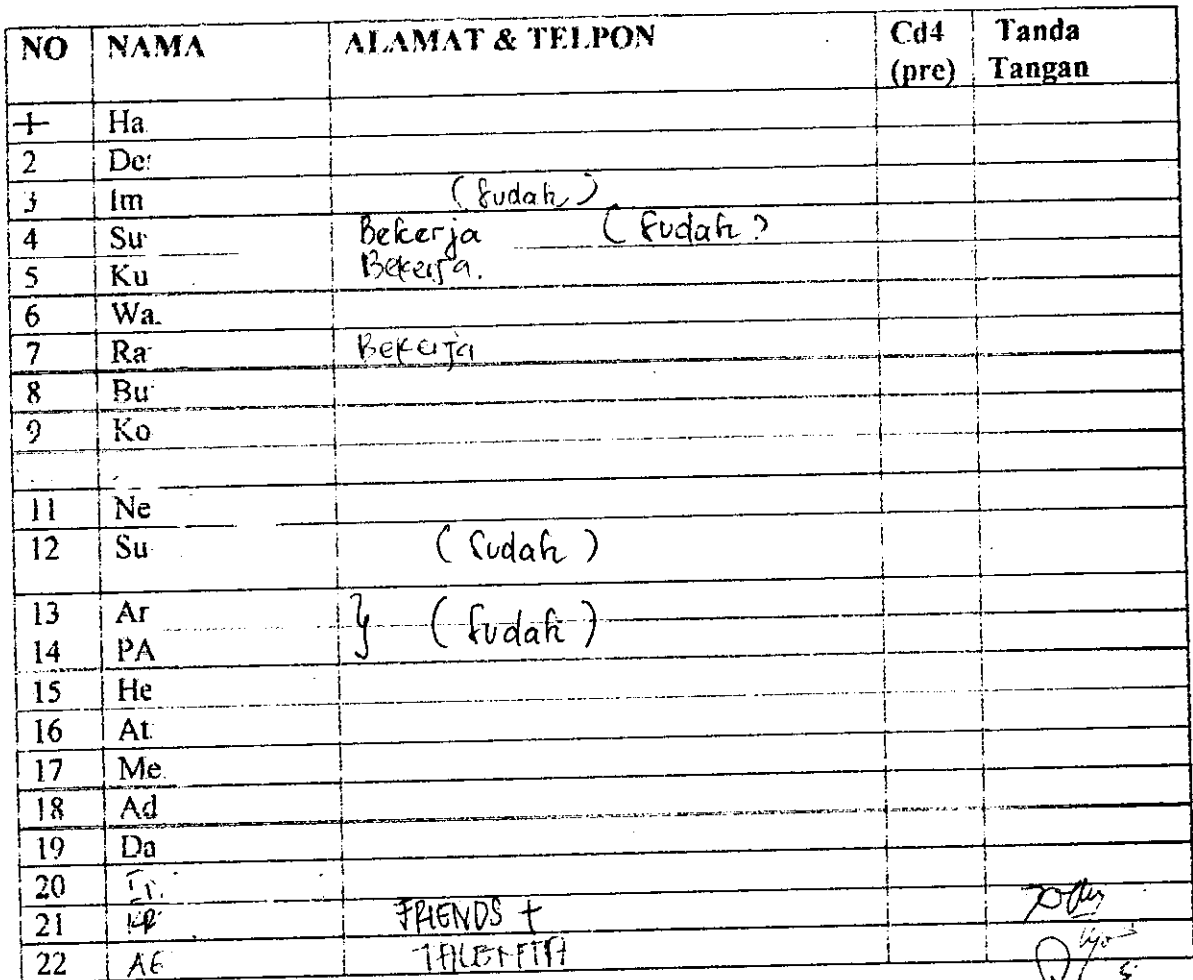 NO NAMA ALAMAT & TELPON Cd4 (pre) Tanda Tangan
1 Ha
2 De
3 Im (Sudah)
4 Su Bekerja (Sudah)
5 Ku Bekerja.
6 Wa
7 Ra Bekerja
8 Bu
9 Ko
11 Ne
12 Su (Sudah)
13 Ar (Sudah)
14 PA
15 He
16 At
17 Me
18 Ad
19 Da
20
21 FRIENDS +
22 AE